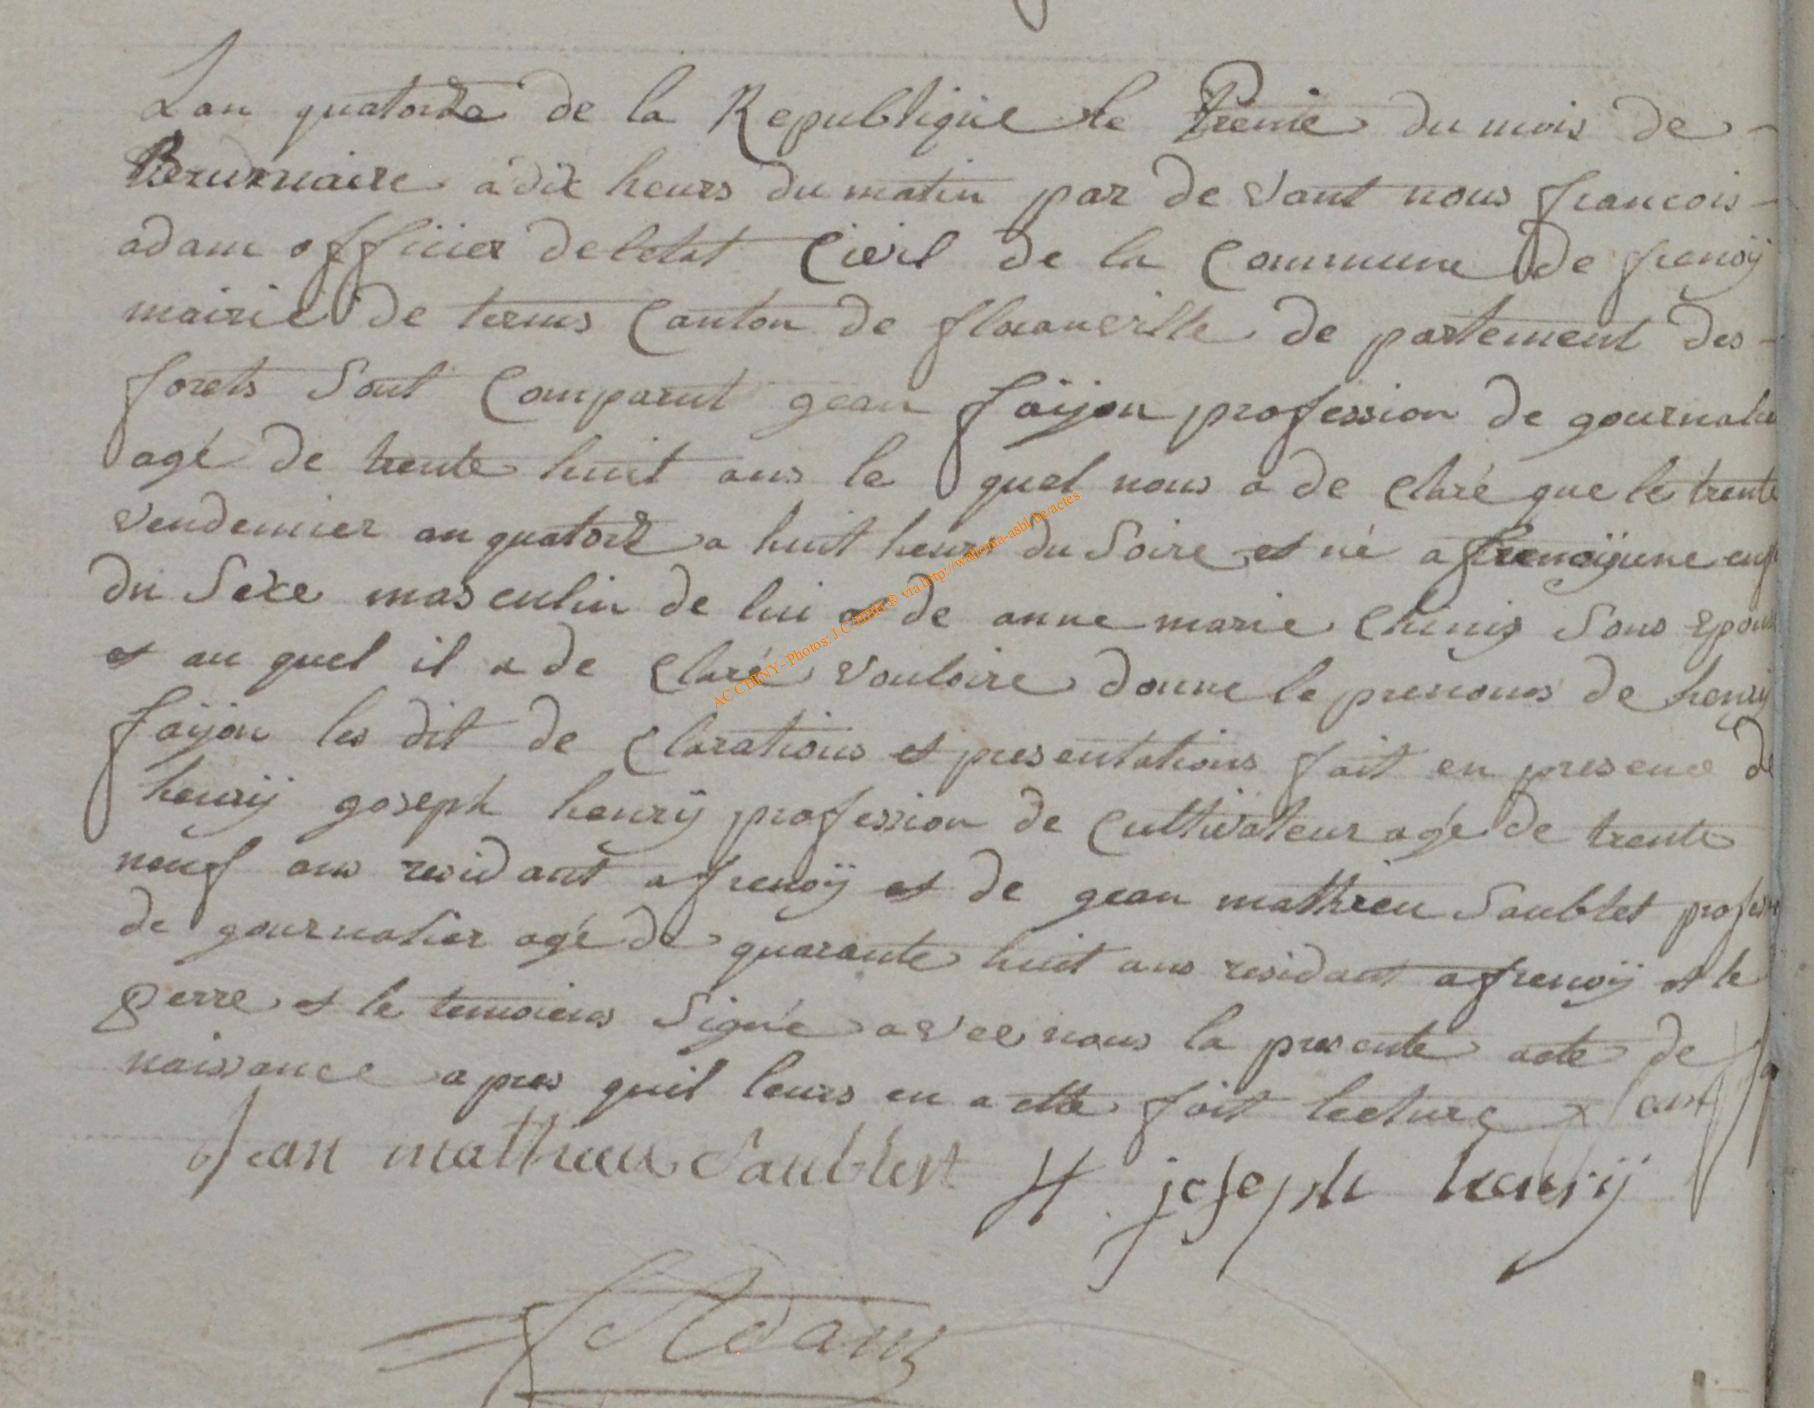 Lan quatorze de la Republique le Premie du mois de
Brumaire a dix heurs du matin par de vant nous francois
adam officier de letat Civil de la Commune de frenoÿ
mairie de termes Canton de floranville de partement des
forets Sont Comparut gean faijon profession de gournalie
agé de trente huit ans le quel nous a de claré que le trente
vendemier an quatorze a huit heurs du Soire et né a frenoÿ une enf
du Sexe masculin de lui et de anne marie Sons epous
et au quel il a de claré vouloire donne le prenoms de henrij
faijon les dit de clarations et presentations fait en presence de
henrij goseph henrÿ profession de Cultivateur agé de trente
neuf ans residant a frenoÿ et de gean mathieu Saublet profes
de gournalier agé de quarante huit ans residant a frenoÿ et le
perre et le temoiens Signée avec nous la presente acte de
naissance apres quil leurs en a etté fait lecture
Jean mathieu Saublet H joseph henrij
f Adam
AC CHINY - Photos J.C. via http://wallonia-asbl.be/actes